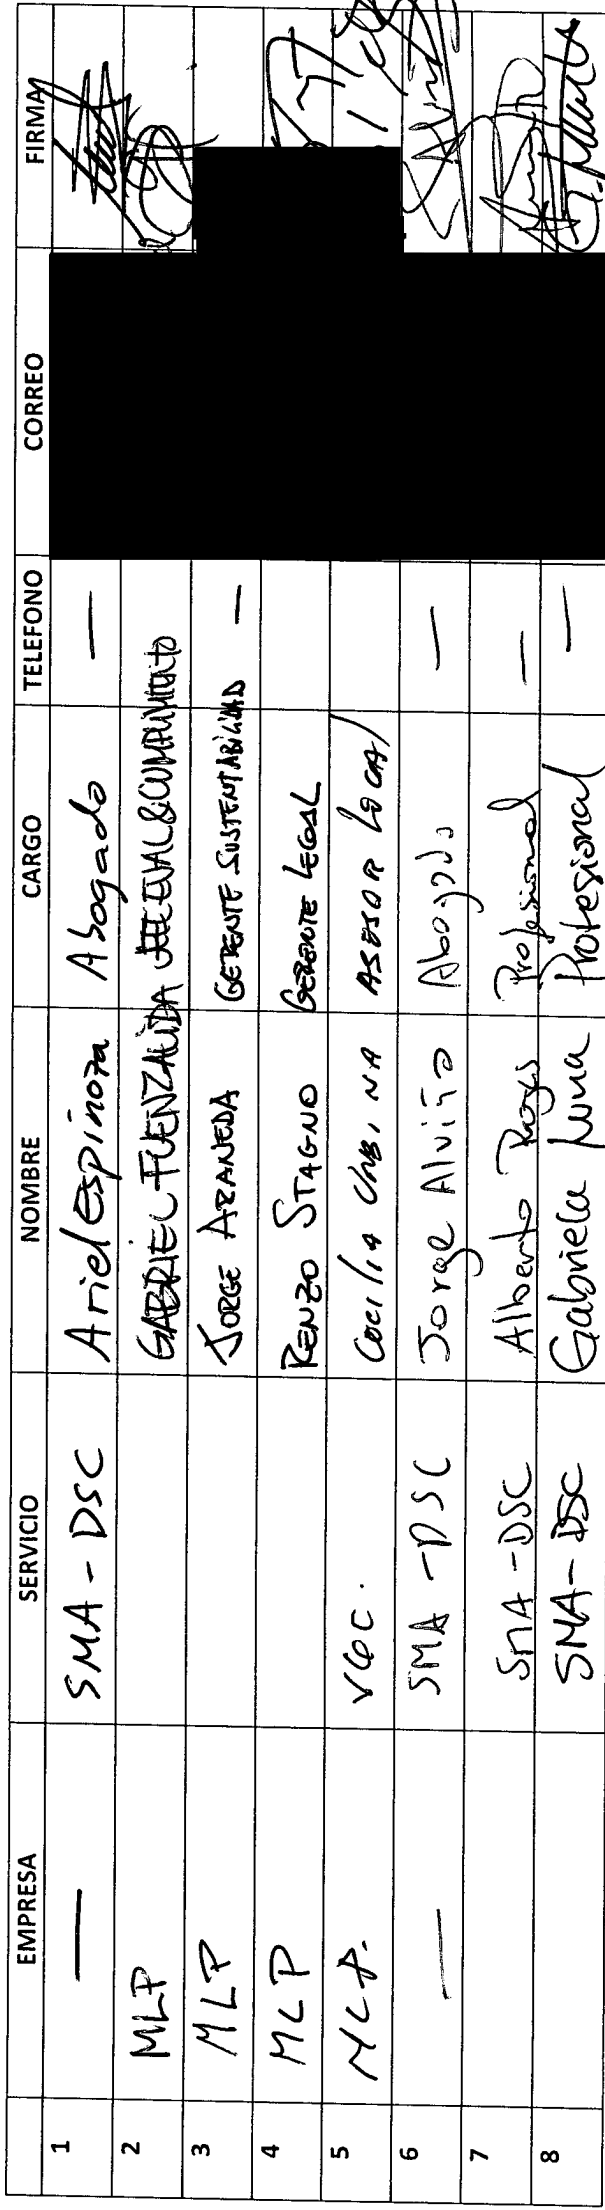 EMPRESA SERVICIO NOMBRE CARGO TELEFONO CORREO FIRMA
1 — SMA - DSC Ariel Espinoza Abogado —
2 MLP GABRIEL FUENZALIDA
3 MLP JORGE ARANEDA GERENTE SUSTENTABILIDAD —
4 MLP RENZO STAGNO GERENTE LEGAL
5 MLP. VGC. ASESOR
6 — SMA - DSC Jorge Alviña Abogado —
7 SMA - DSC Alberto Rojas Profesional —
8 SMA - DSC Gabriela Luna Profesional —